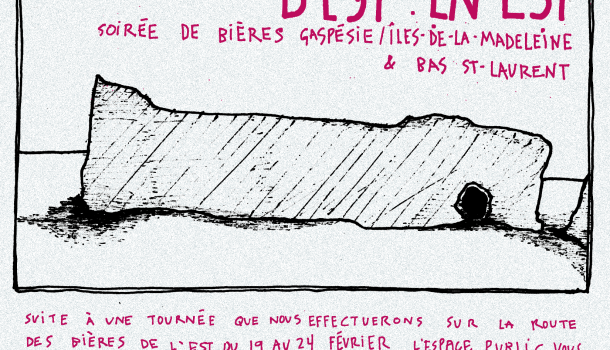 D'EST EN EST
SOIRÉE DE BIÈRES GASPÉSIE/ÎLES-DE-LA-MADELEINE
& BAS ST-LAURENT
SUITE À UNE TOURNÉE QUE NOUS EFFECTUERONS SUR LA ROUTE
DES BIÈRES DE L'EST DU 19 AU 24 FÉVRIER L'ESPACE PUBLIC VOUS